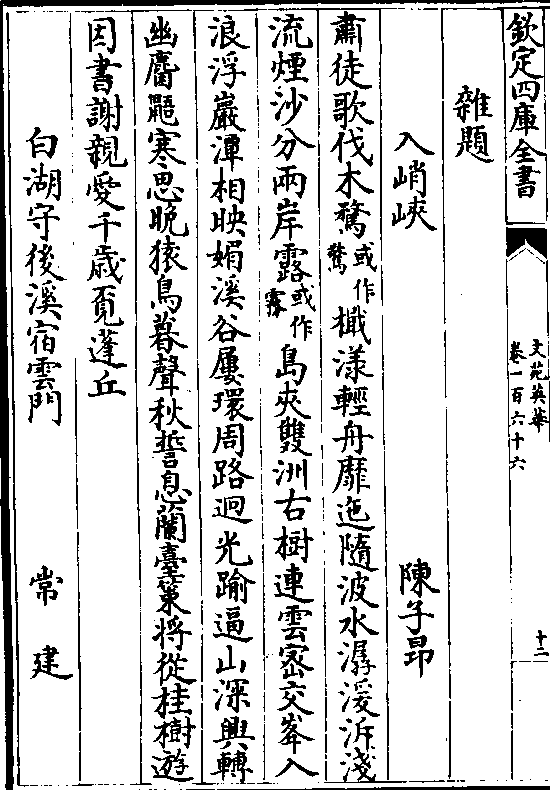 欽定四庫全書
文苑英華
卷一百六十六
十二
雜題
入峭峽 陳子昂
肅徒歌伐木鶩或作驚檝漾輕舟靡迤隨波水潺湲泝淺
流煙沙分兩岸露或作霧島夾雙洲古樹連雲密交峯入
浪浮巖潭相映媚溪谷屢環周路迥光踰逼山深興轉
幽麏鼯寒思晚猿鳥暮聲秋誓息蘭臺策将從桂樹遊
因書謝親愛千歳覓蓬丘
白湖守後溪宿雲門 常建